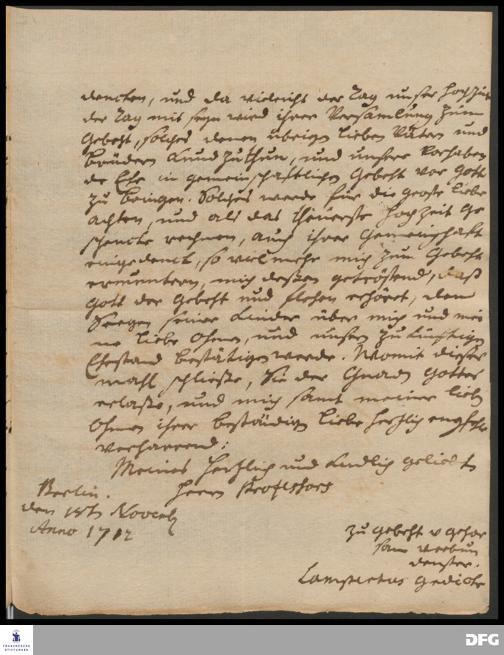 dencken, und da vieleicht der Tag unser Hochzeit
der Tag mit seyn wird ihrer Versamlung zum
Gebeht, solches denen übrigen lieben Vätern und
Brüdern kund zu thun, und unsere Vorhaben
de Ehe in gemeinschafftlichen Gebeht vor Gott
zu bringen. Solches werde für die große Liebe
achten, und als das theuerste Hochzeit Ge
schencke rechnen, auch ihrer Gemeinschafft
eingedenck, so viel mehr mich zum Gebeht
ermuntern, mich dessen getröstend, daß
Gott der Gebeht und flehen erhöret, den
Seegen seiner Kinder über mich und mei
ne liebe Ohmen, und unsern zukünfftigen
Ehestand bestätigen werde. Womit dieses
mahl schließe, Sie der Gnade Gottes
erlaße, und mich samt meiner lieben
Ohmen ihrer beständigen Liebe hertzlich empfehle
verharrend:
Meines Hertzlich und kindlich geliebten
Herrn Professors
Berlin.
den 18t Novemb
Anno 1712
zu Gebeht u Gehor
sam verbun
denster.
Lampertus Gedicke
FRANCKESCHE
STIFTUNGEN
DFG